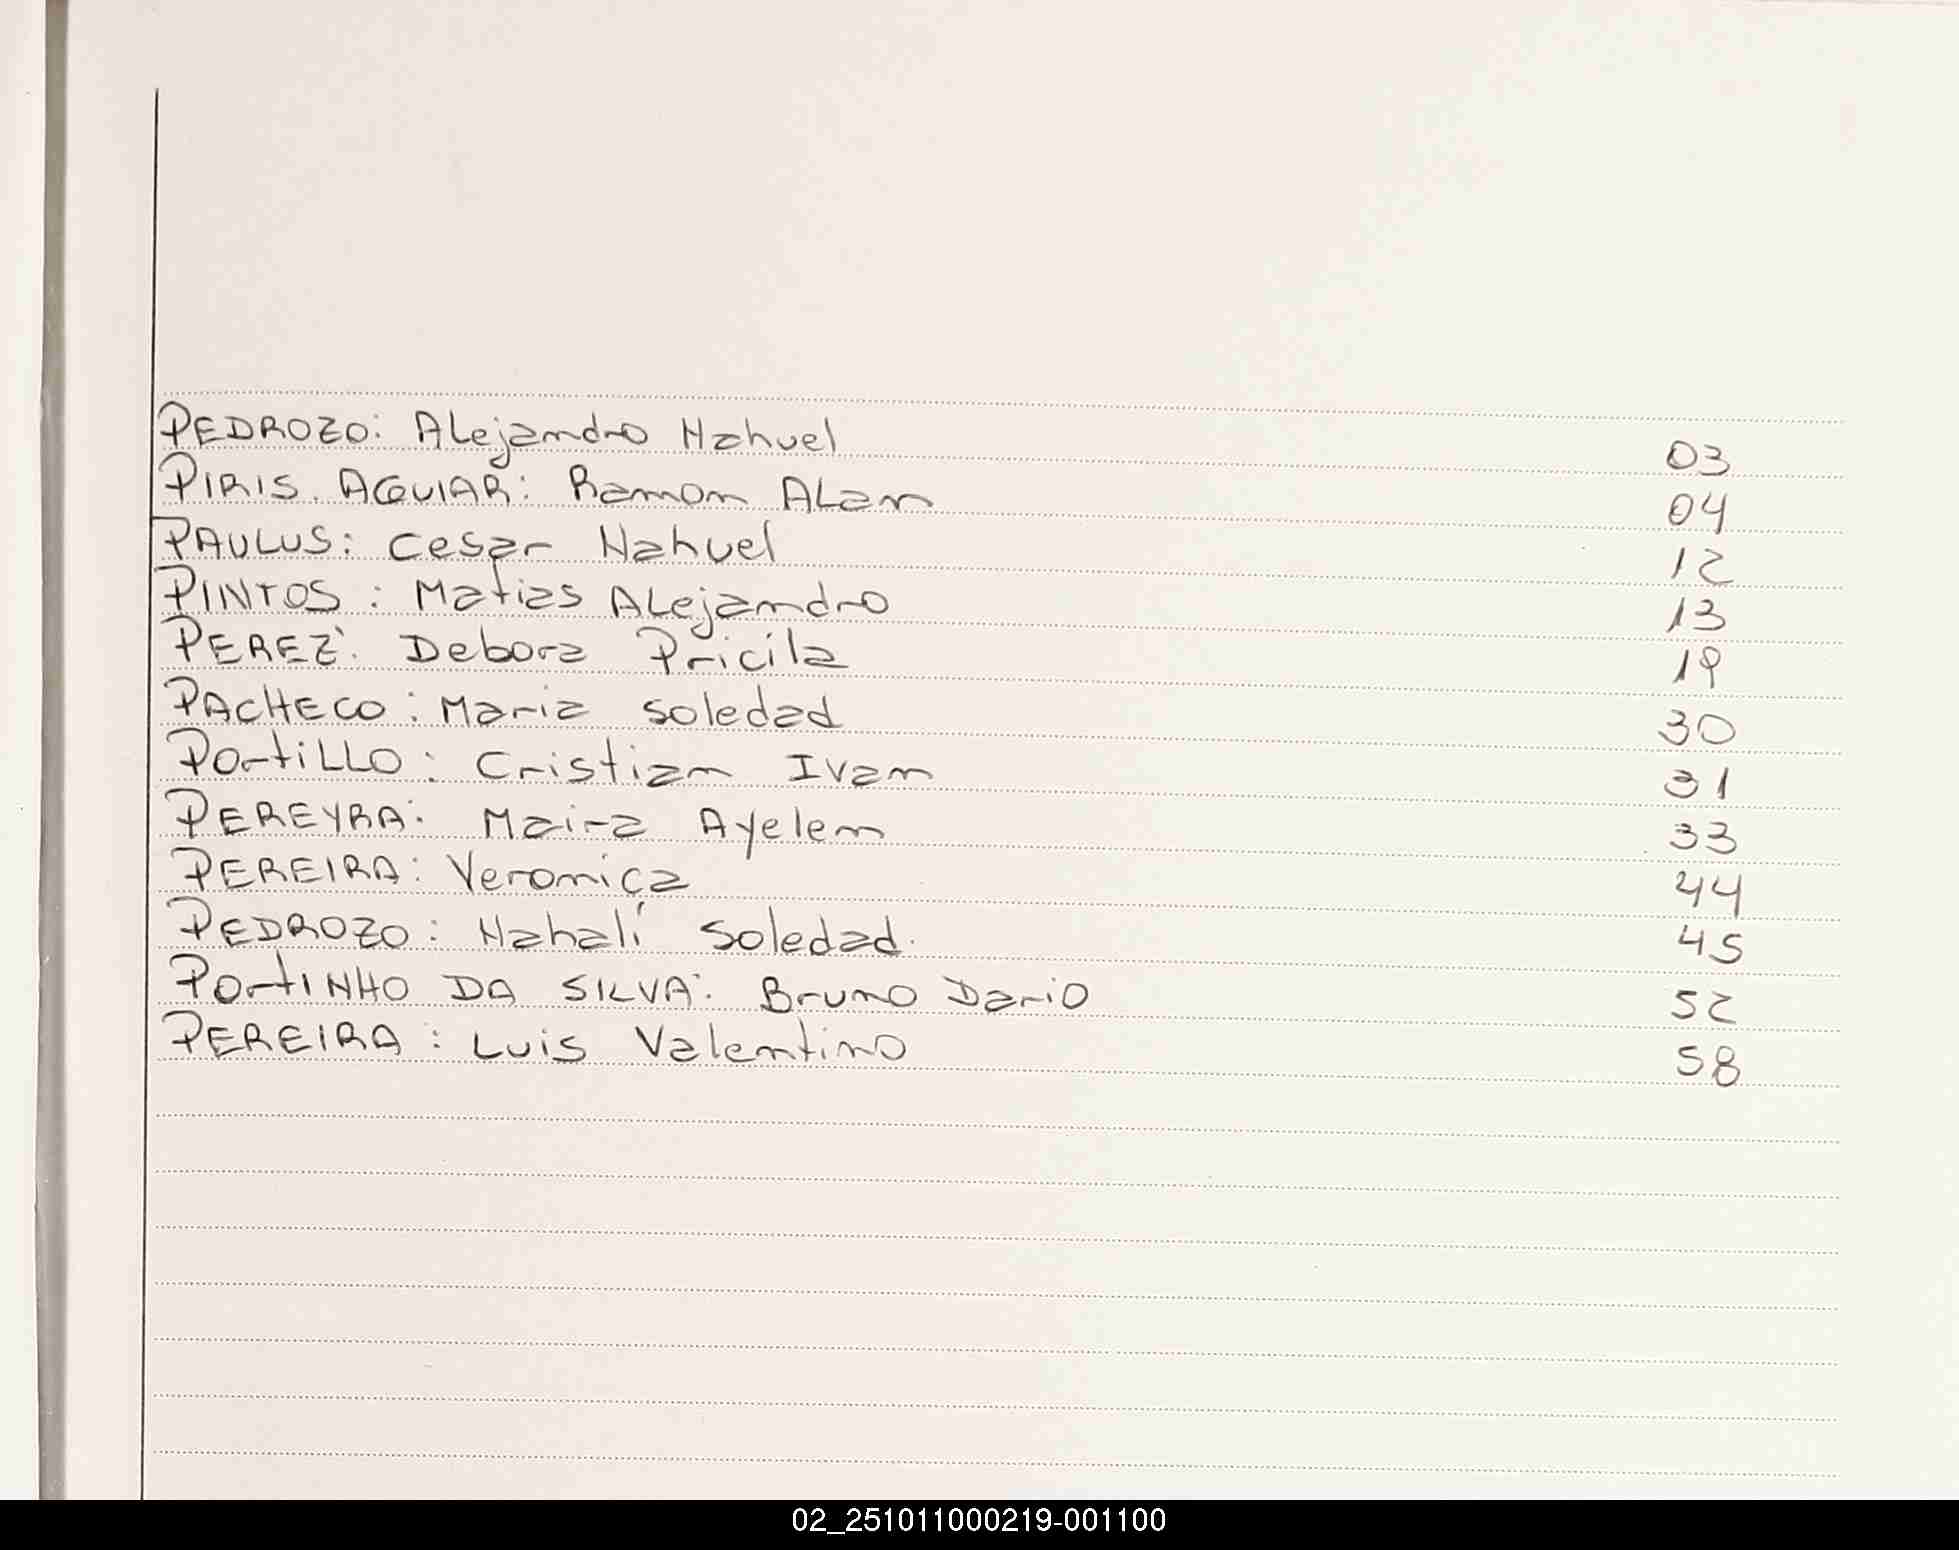 PEDROZO: Alejandro Nahuel 03
PIRIS. AGUIAR: Ramon Alan 04
PAULUS: Cesar Nahuel 12
PINTOS: Matias Alejandro 13
PEREZ: Debora Pricila 19
PACHECO: Maria Soledad 30
PortiLLO: Cristian Ivan 31
PEREYRA: Maira Ayelen 33
PEREIRA: Veronica 44
PEDROZO: Nahali Soledad. 45
PortINHO DA SILVA: Bruno Dario 52
PEREIRA: Luis Valentino 58
02_251011000219-001100